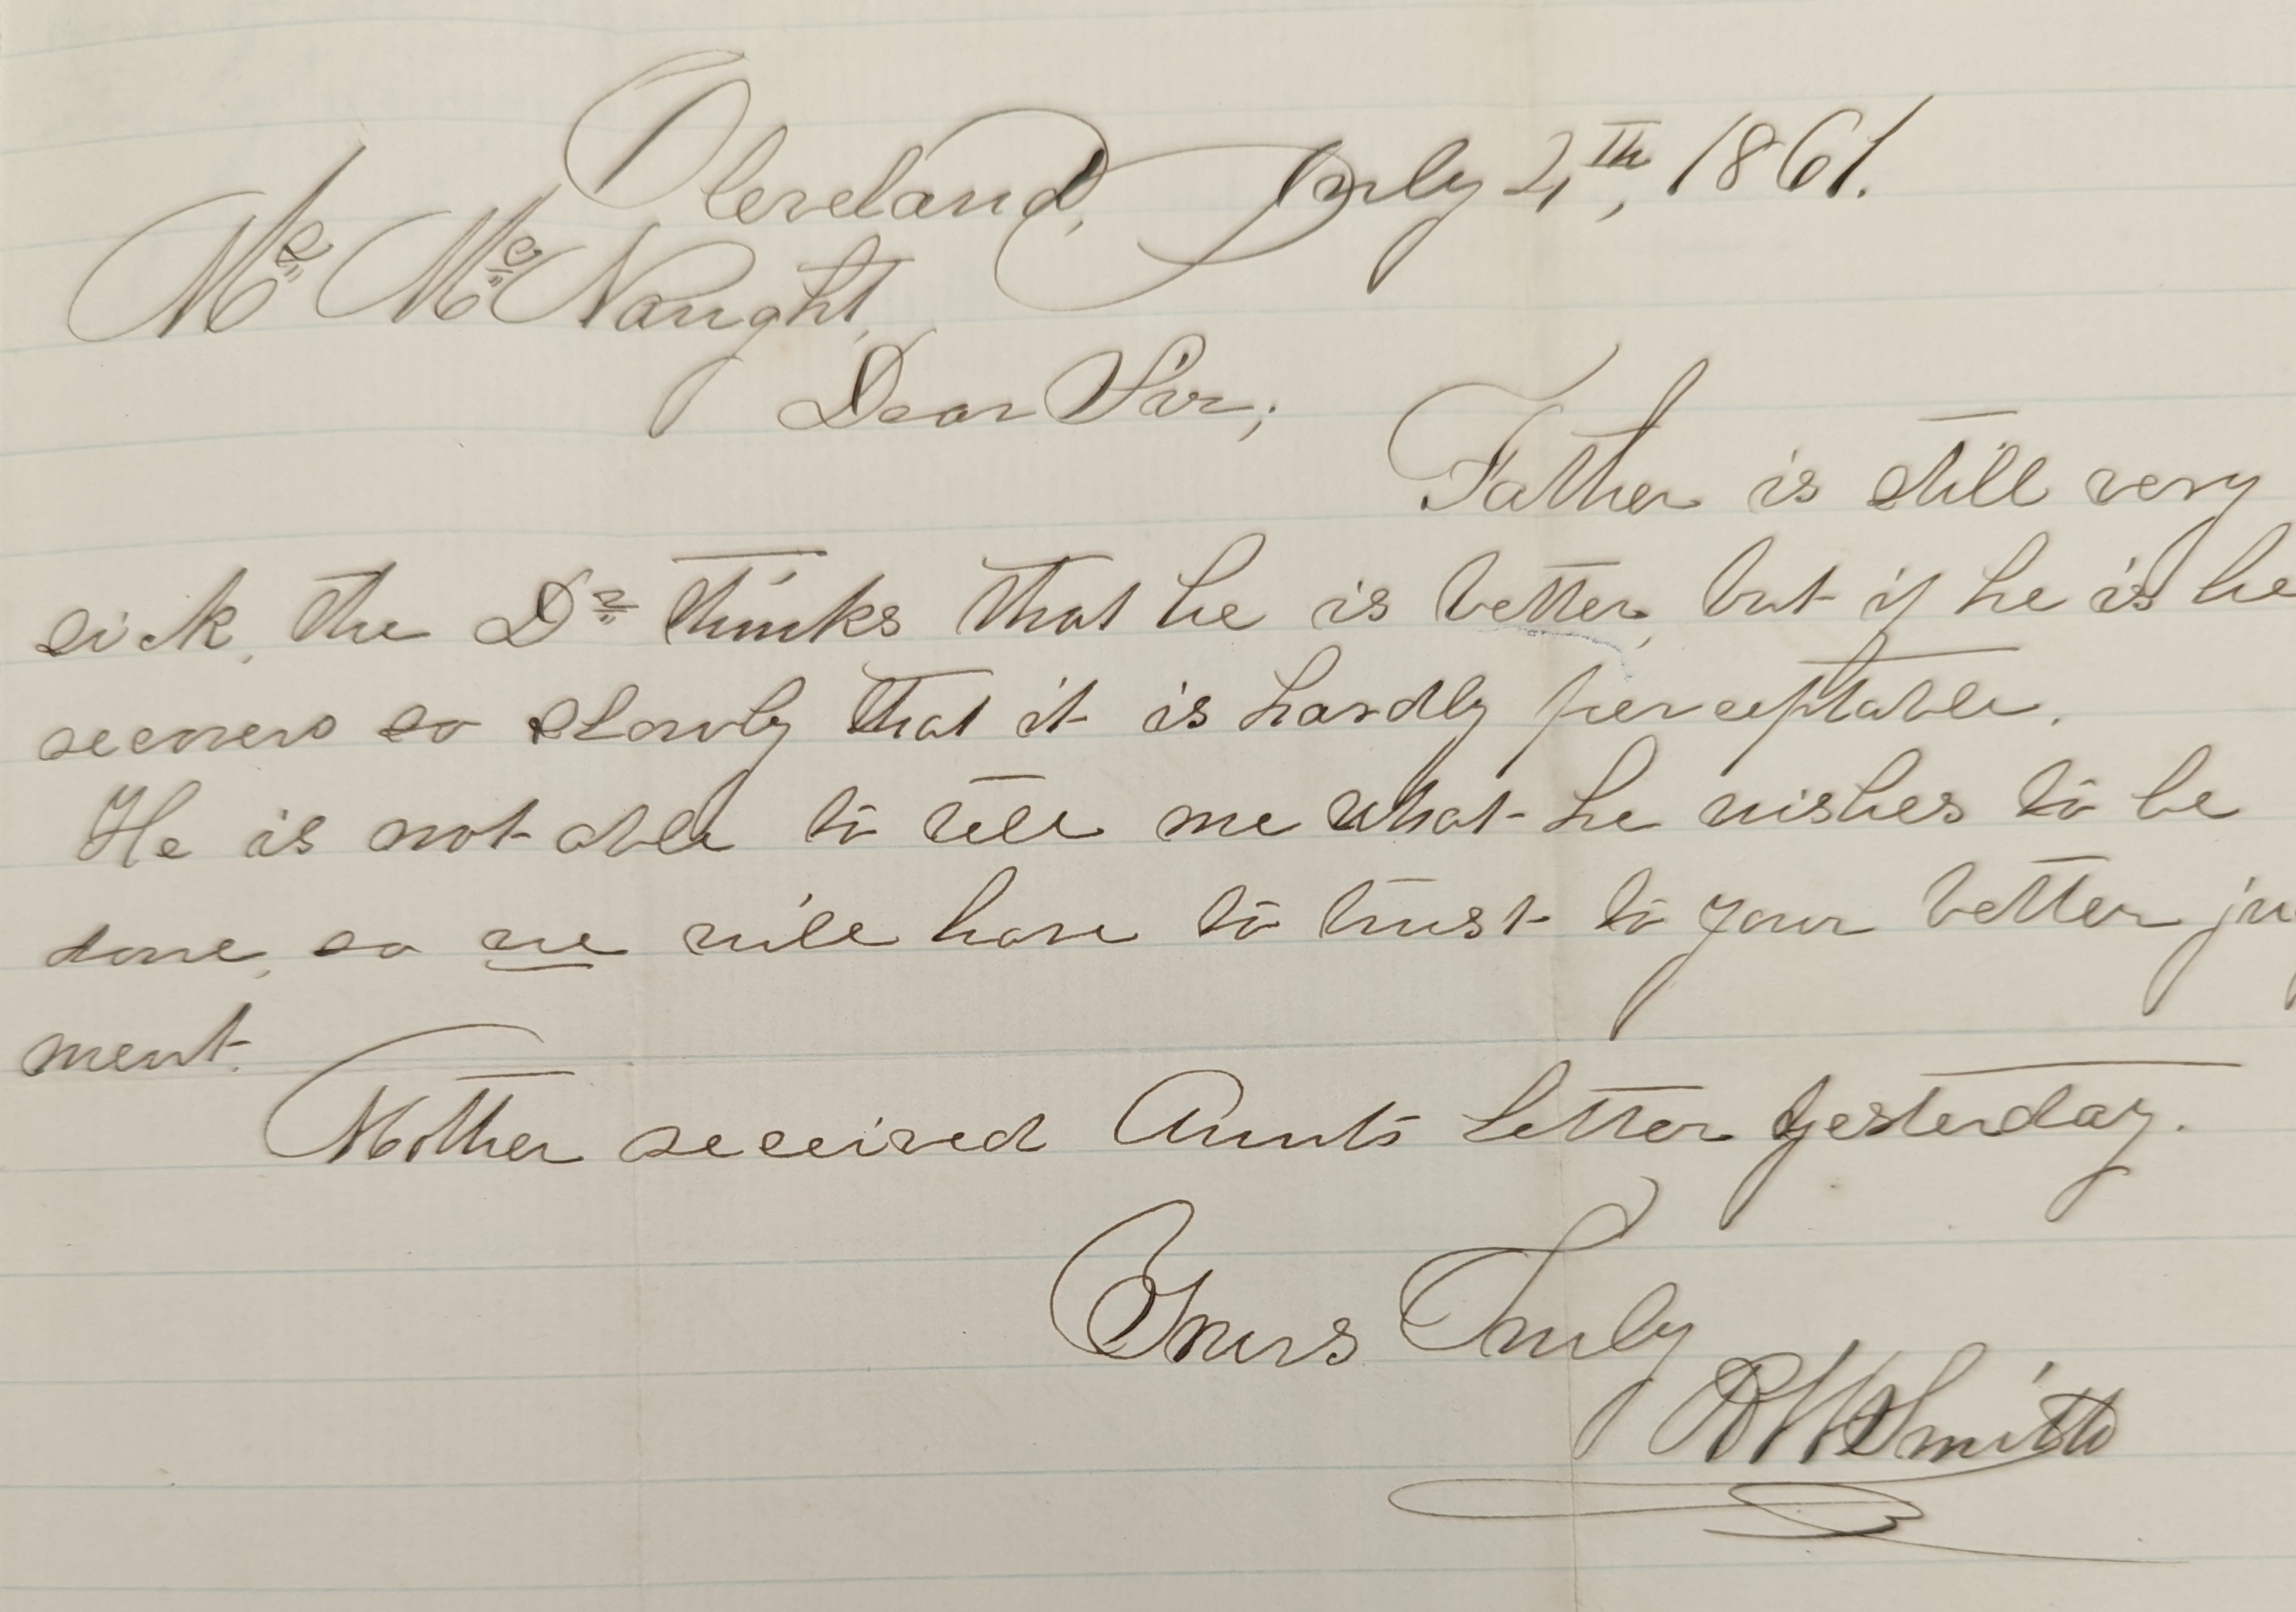 Cleveland, July 4th, 1861.
Mr McNaught,
Dear Sir;
Father is still very
sick, the Dr thinks that he is better, but if he is he
seems so slowly that it is hardly perceptable.
He is not able to tell me what he wishes to be
done, so we will have to trust to your better ju
ment.
Mother received Aunts letter yesterday.
Yours Truly
R H Smith